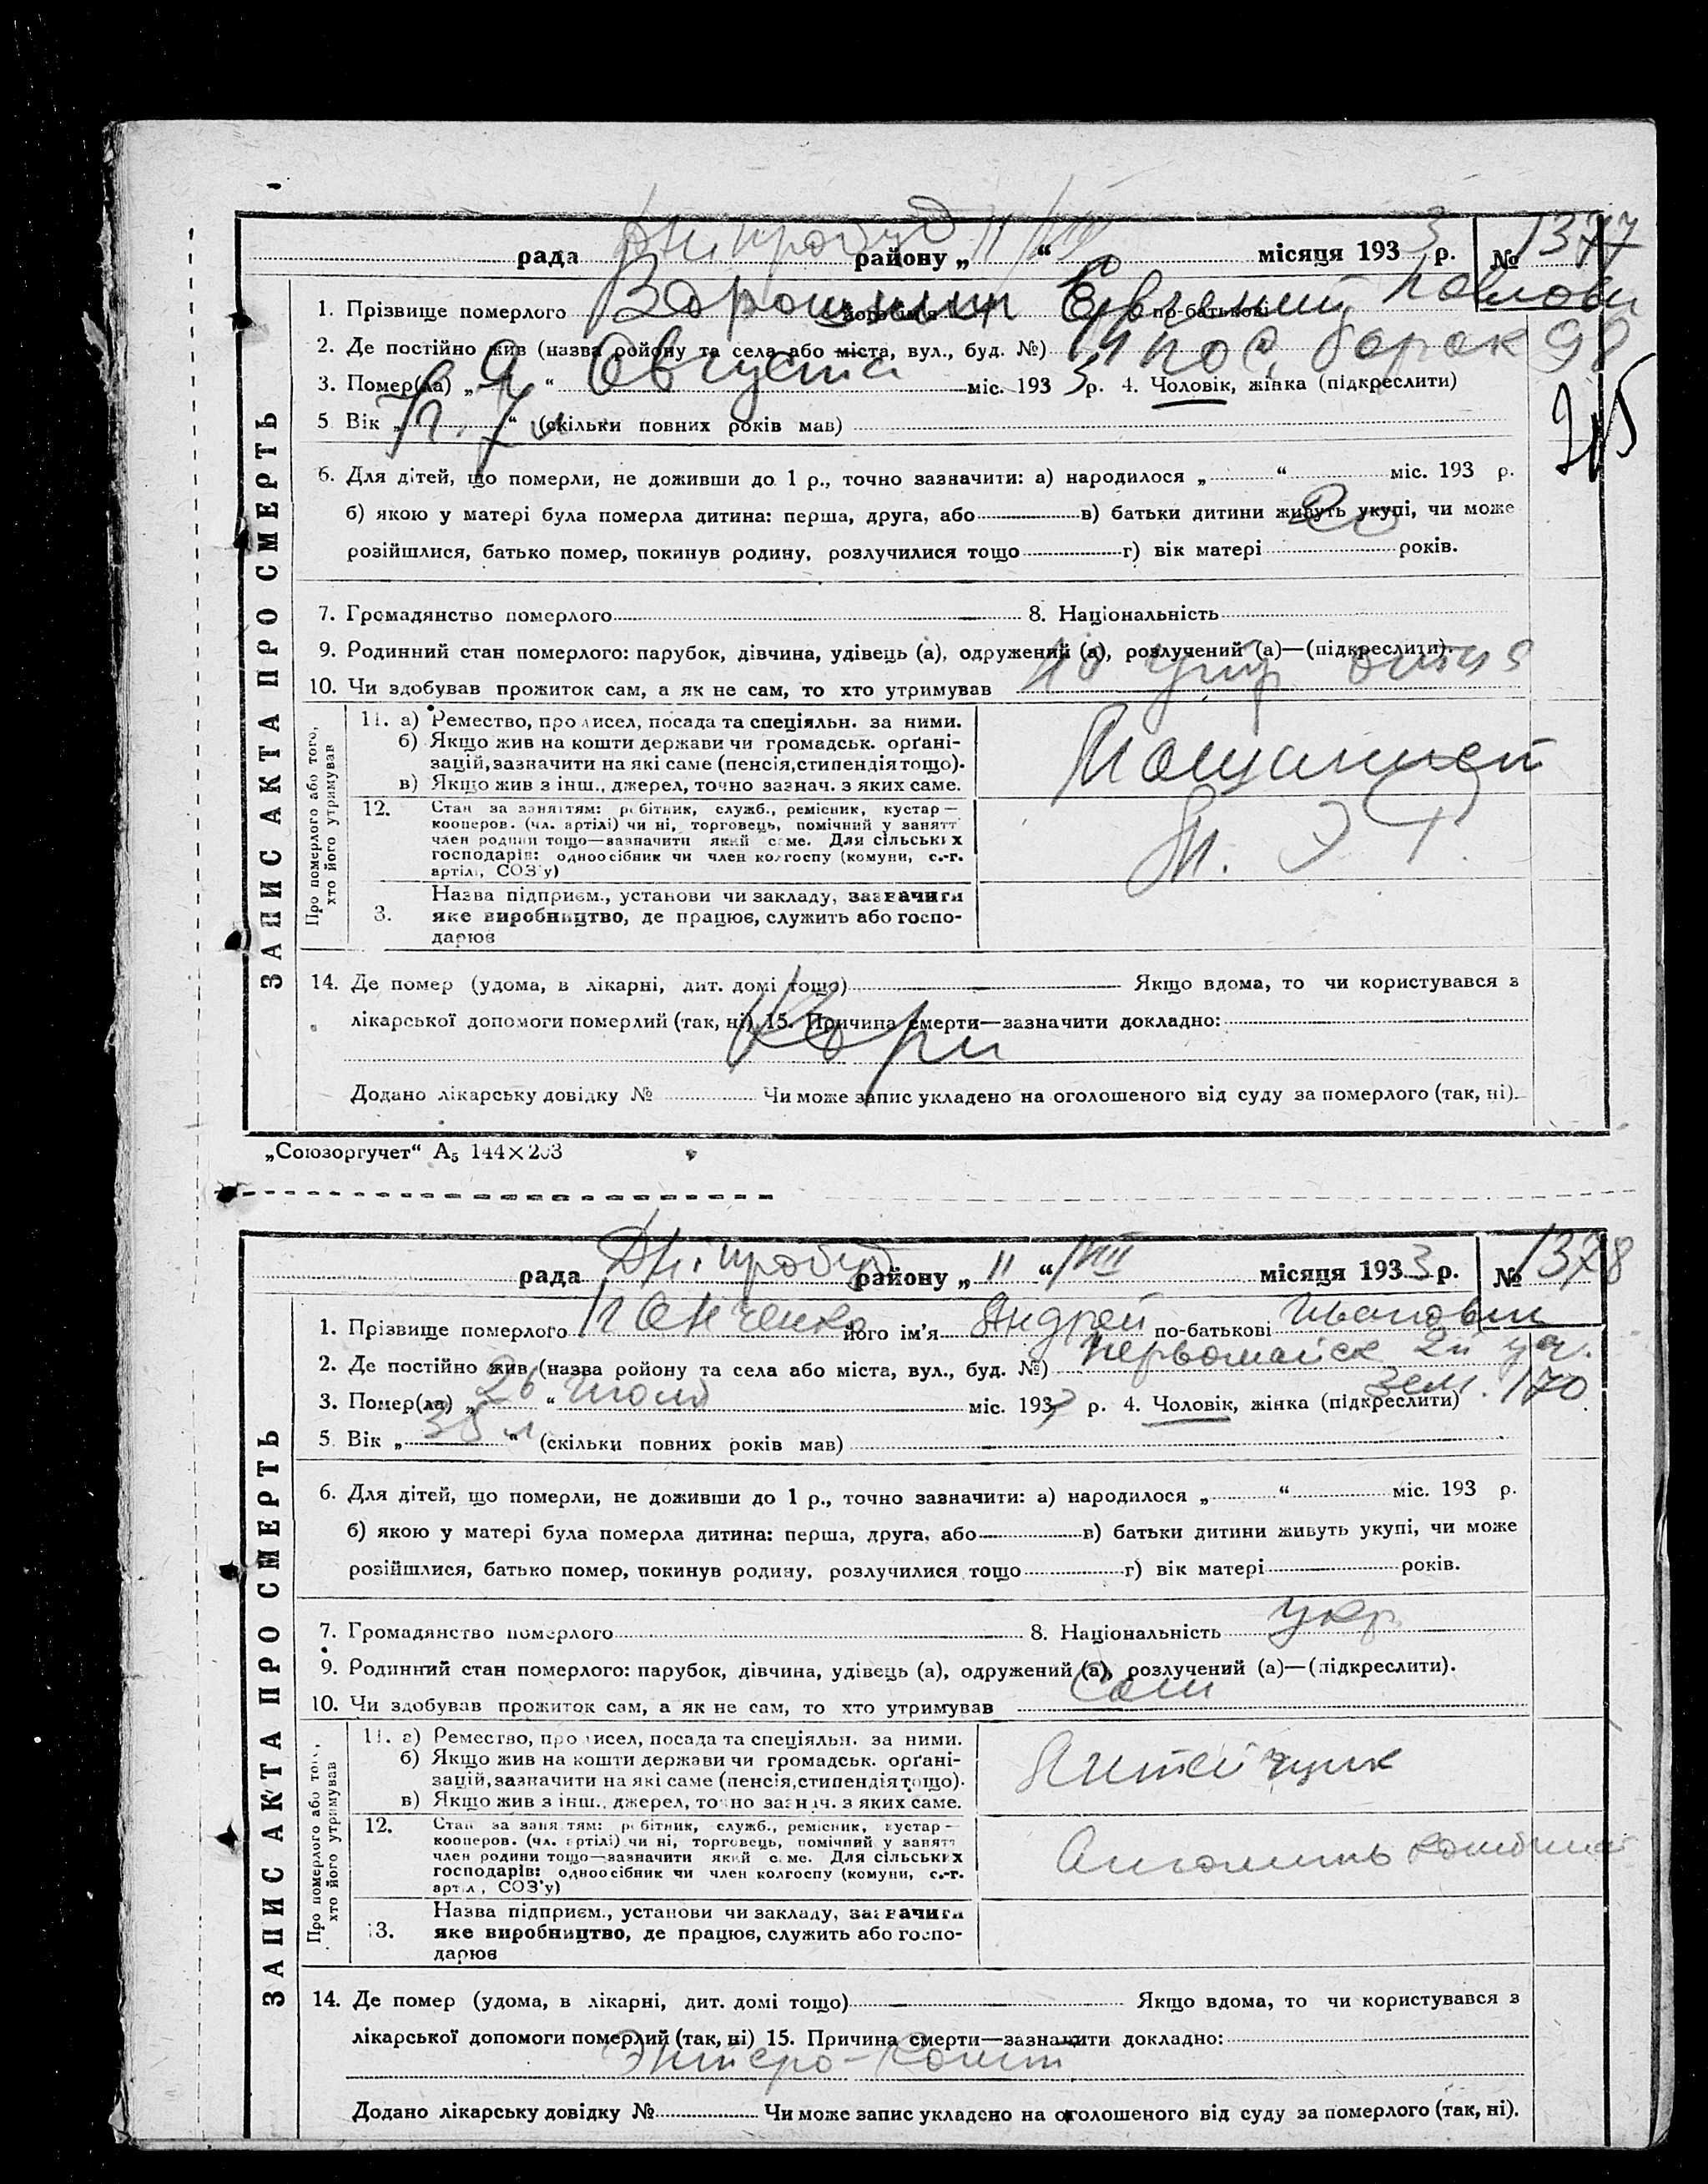 рада Дніпробуд району „ 11 “ VIII місяця 193 3 р. № 1377
1. Прізвище померлого його ім'я Евгений по-батькові
2. Де постійно жив (назва ройону та села або міста, вул., буд. №) 14 пос барак 98
3. Помер(ла) „ 9 “ Августа міс. 193 3 р. 4. Чоловік, жінка (підкреслити)
5 Вік „ “ (скільки повних років мав)
6. Для дітей, що померли, не доживши до 1 р., точно зазначити: а) народилося „ “ міс. 193 р.
б) якою у матері була померла дитина: перша, друга, або в) батьки дитини живуть укупі, чи може
розійшлися, батько помер, покинув родину, розлучилися тощо г) вік матері років.
7. Громадянство померлого 8. Національність
9. Родинний стан померлого: парубок, дівчина, удівець (а), одружений (а), розлучений (а)—(підкреслити).
10. Чи здобував прожиток сам, а як не сам, то хто утримував
Про померлого або того, хто його утримував
11. а) Ремество, промисел, посада та спеціяльн. за ними.
б) Якщо жив на кошти держави чи громадськ. орґані-
зацій, зазначити на які саме (пенсія, стипендія тощо).
в) Якщо жив з інш., джерел, точно зазнач. з яких саме.
12. Стан за заняттям: робітник, служб., ремісник, кустар—
кооперов. (чл. артілі) чи ні, торговець, помічний у занятт
член родини тощо—зазначити який саме. Для сільських
господарів: одноосібник чи член колгоспу (комуни, с.-г.
артілі, СОЗ'у)
3. Назва підприєм., установи чи закладу, зазначити
яке виробництво, де працює, служить або госпо-
дарює
14. Де помер (удома, в лікарні, дит. домі тощо) Якщо вдома, то чи користувався з
лікарської допомоги померлий (так, ні) 15. Причина смерти—зазначити докладно:
Корь
Додано лікарську довідку № Чи може запис укладено на оголошеного від суду за померлого (так, ні).
ЗАПИС АКТА ПРО СМЕРТЬ
„Союзоргучет“ А5 144×203
рада Дніпробуд району „ 11 “ VIII місяця 193 3 р. № 1378
1. Прізвище померлого його ім'я Андрей по-батькові Иванович
2. Де постійно жив (назва ройону та села або міста, вул., буд. №) Первомайск 2й уч.
зем. 170
3. Помер(ла) „ 26 “ Июля міс. 193 3 р. 4. Чоловік, жінка (підкреслити)
5 Вік „ 35 л “ (скільки повних років мав)
6. Для дітей, що померли, не доживши до 1 р., точно зазначити: а) народилося „ “ міс. 193 р.
б) якою у матері була померла дитина: перша, друга, або в) батьки дитини живуть укупі, чи може
розійшлися, батько помер, покинув родину, розлучилися тощо г) вік матері років.
7. Громадянство померлого 8. Національність укр.
9. Родинний стан померлого: парубок, дівчина, удівець (а), одружений (а), розлучений (а)—(підкреслити).
10. Чи здобував прожиток сам, а як не сам, то хто утримував Сам
Про померлого або того, хто його утримував
11. а) Ремество, промисел, посада та спеціяльн. за ними.
б) Якщо жив на кошти держави чи громадськ. орґані-
зацій, зазначити на які саме (пенсія, стипендія тощо).
в) Якщо жив з інш., джерел, точно зазнач. з яких саме.
Литейщик
12. Стан за заняттям: робітник, служб., ремісник, кустар—
кооперов. (чл. артілі) чи ні, торговець, помічний у занятт
член родини тощо—зазначити який саме. Для сільських
господарів: одноосібник чи член колгоспу (комуни, с.-г.
артілі, СОЗ'у)
13. Назва підприєм., установи чи закладу, зазначити
яке виробництво, де працює, служить або госпо-
дарює
14. Де помер (удома, в лікарні, дит. домі тощо) Якщо вдома, то чи користувався з
лікарської допомоги померлий (так, ні) 15. Причина смерти—зазначити докладно:
Энтеро-колит
Додано лікарську довідку № Чи може запис укладено на оголошеного від суду за померлого (так, ні).
ЗАПИС АКТА ПРО СМЕРТЬ